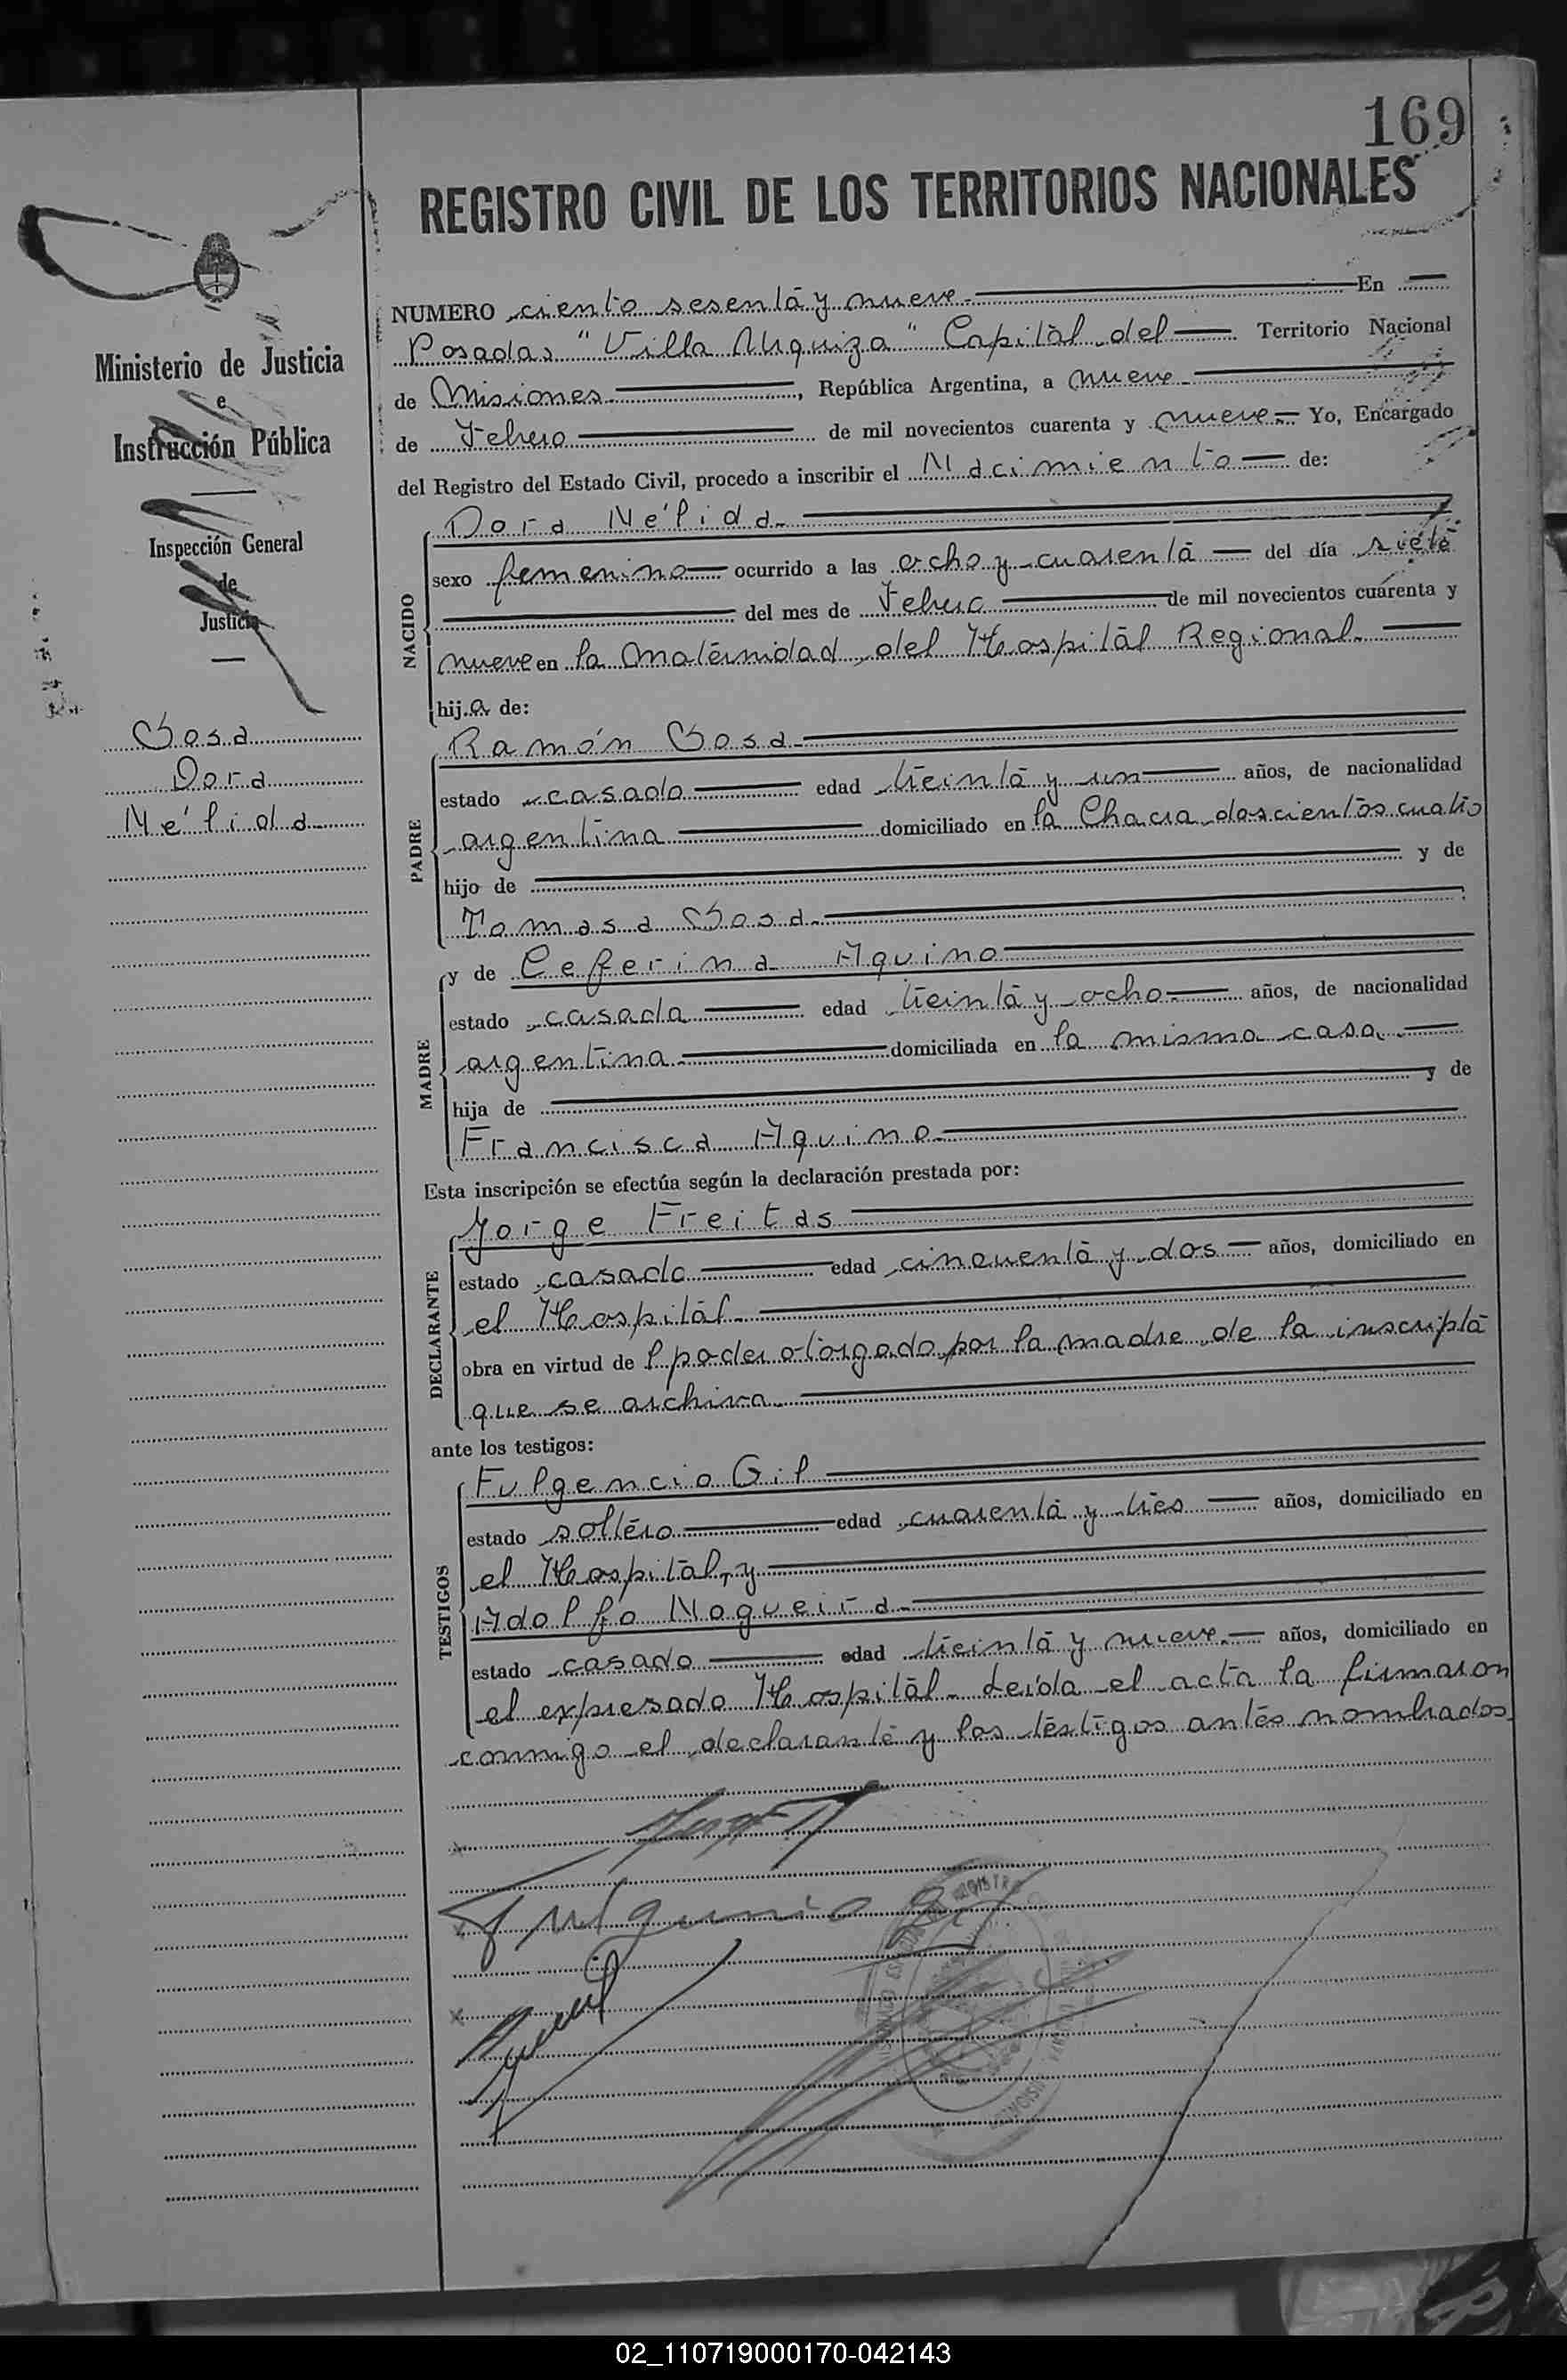 169
REGISTRO CIVIL DE LOS TERRITORIOS NACIONALES
Ministerio de Justicia
e
Instrucción Pública
Inspección General
de
Justicia
Sosa
Dora
Nélida
NUMERO ciento sesenta y nueve. En
Posadas "Villa Urquiza" Capital del Territorio Nacional
de Misiones, República Argentina, a nueve
de Febrero de mil novecientos cuarenta y nueve. Yo, Encargado
del Registro del Estado Civil, procedo a inscribir el Nacimiento de:
NACIDO
Dora Nélida
sexo femenino ocurrido a las ocho y cuarenta del día siete
del mes de Febrero de mil novecientos cuarenta y
nueve en la Maternidad del Hospital Regional.
hija de:
PADRE
Ramón Sosa
estado casado edad treinta y un años, de nacionalidad
argentina domiciliado en la Chacra doscientos cuatro
hijo de y de
Tomasa Sosa
MADRE
y de Ceferina Aquino
estado casada edad treinta y ocho años, de nacionalidad
argentina domiciliada en la misma casa.
hija de y de
Francisca Aquino
Esta inscripción se efectúa según la declaración prestada por:
DECLARANTE
Jorge Freitas
estado casado edad cincuenta y dos años, domiciliado en
el Hospital
obra en virtud de l poder otorgado por la madre de la inscripta
que se archiva
ante los testigos:
TESTIGOS
Fulgencio Gil
estado soltero edad cuarenta y tres años, domiciliado en
el Hospital, y
Adolfo Nogueira
estado casado edad treinta y nueve. años, domiciliado en
el expresado Hospital. Leída el acta la firmaron
conmigo el declarante y los testigos antes nombrados.
Fulgencio Gil
02_110719000170-042143